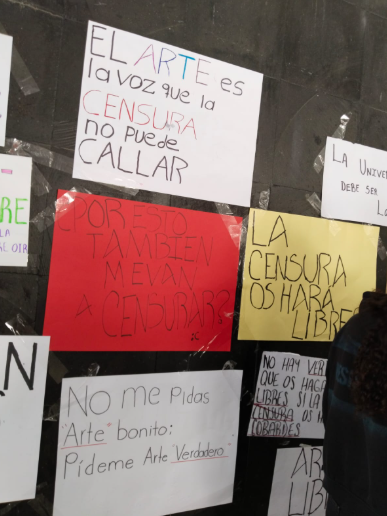 EL ARTE es
la voz que la
CENSURA
no puede
CALLAR
LA UNIVER
DEBE SER
LA
RE
LA
AL OIR
¿POR ESTO
TAMBIEN
ME VAN
A CENSURAR?
LA
CENSURA
OS HARÁ
LIBRES
AN
No me Pidas
"Arte" bonito:
Pídeme Arte "Verdadero"
NO HAY VER
QUE OS HAGA
LIBRES SI LA
CENSURA OS H
COBARDES
AR
LIB